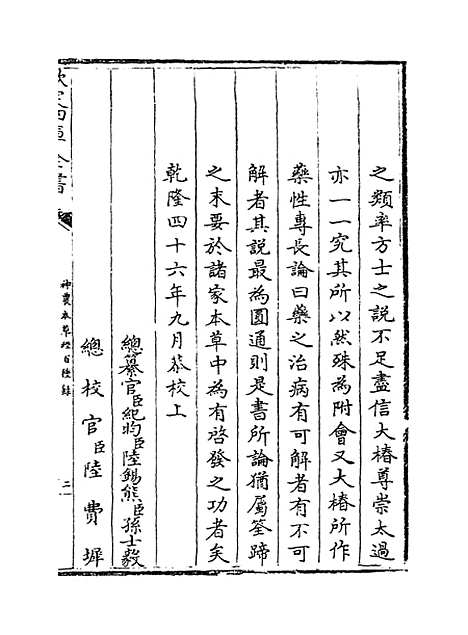 之類率方士之說不足盡信大椿尊崇太過
亦一一究其所以然殊為附會又大椿所作
藥性專長論曰藥之治病有可解者有不可
解者其說最為圓通則是書所論猶屬筌蹄
之末要於諸家本草中為有啓發之功者矣
乾隆四十六年九月恭校上
總纂官臣紀昀臣陸錫熊臣孫士毅
總校官臣陸費墀
欽定四庫全書
神農本草經百種錄
二